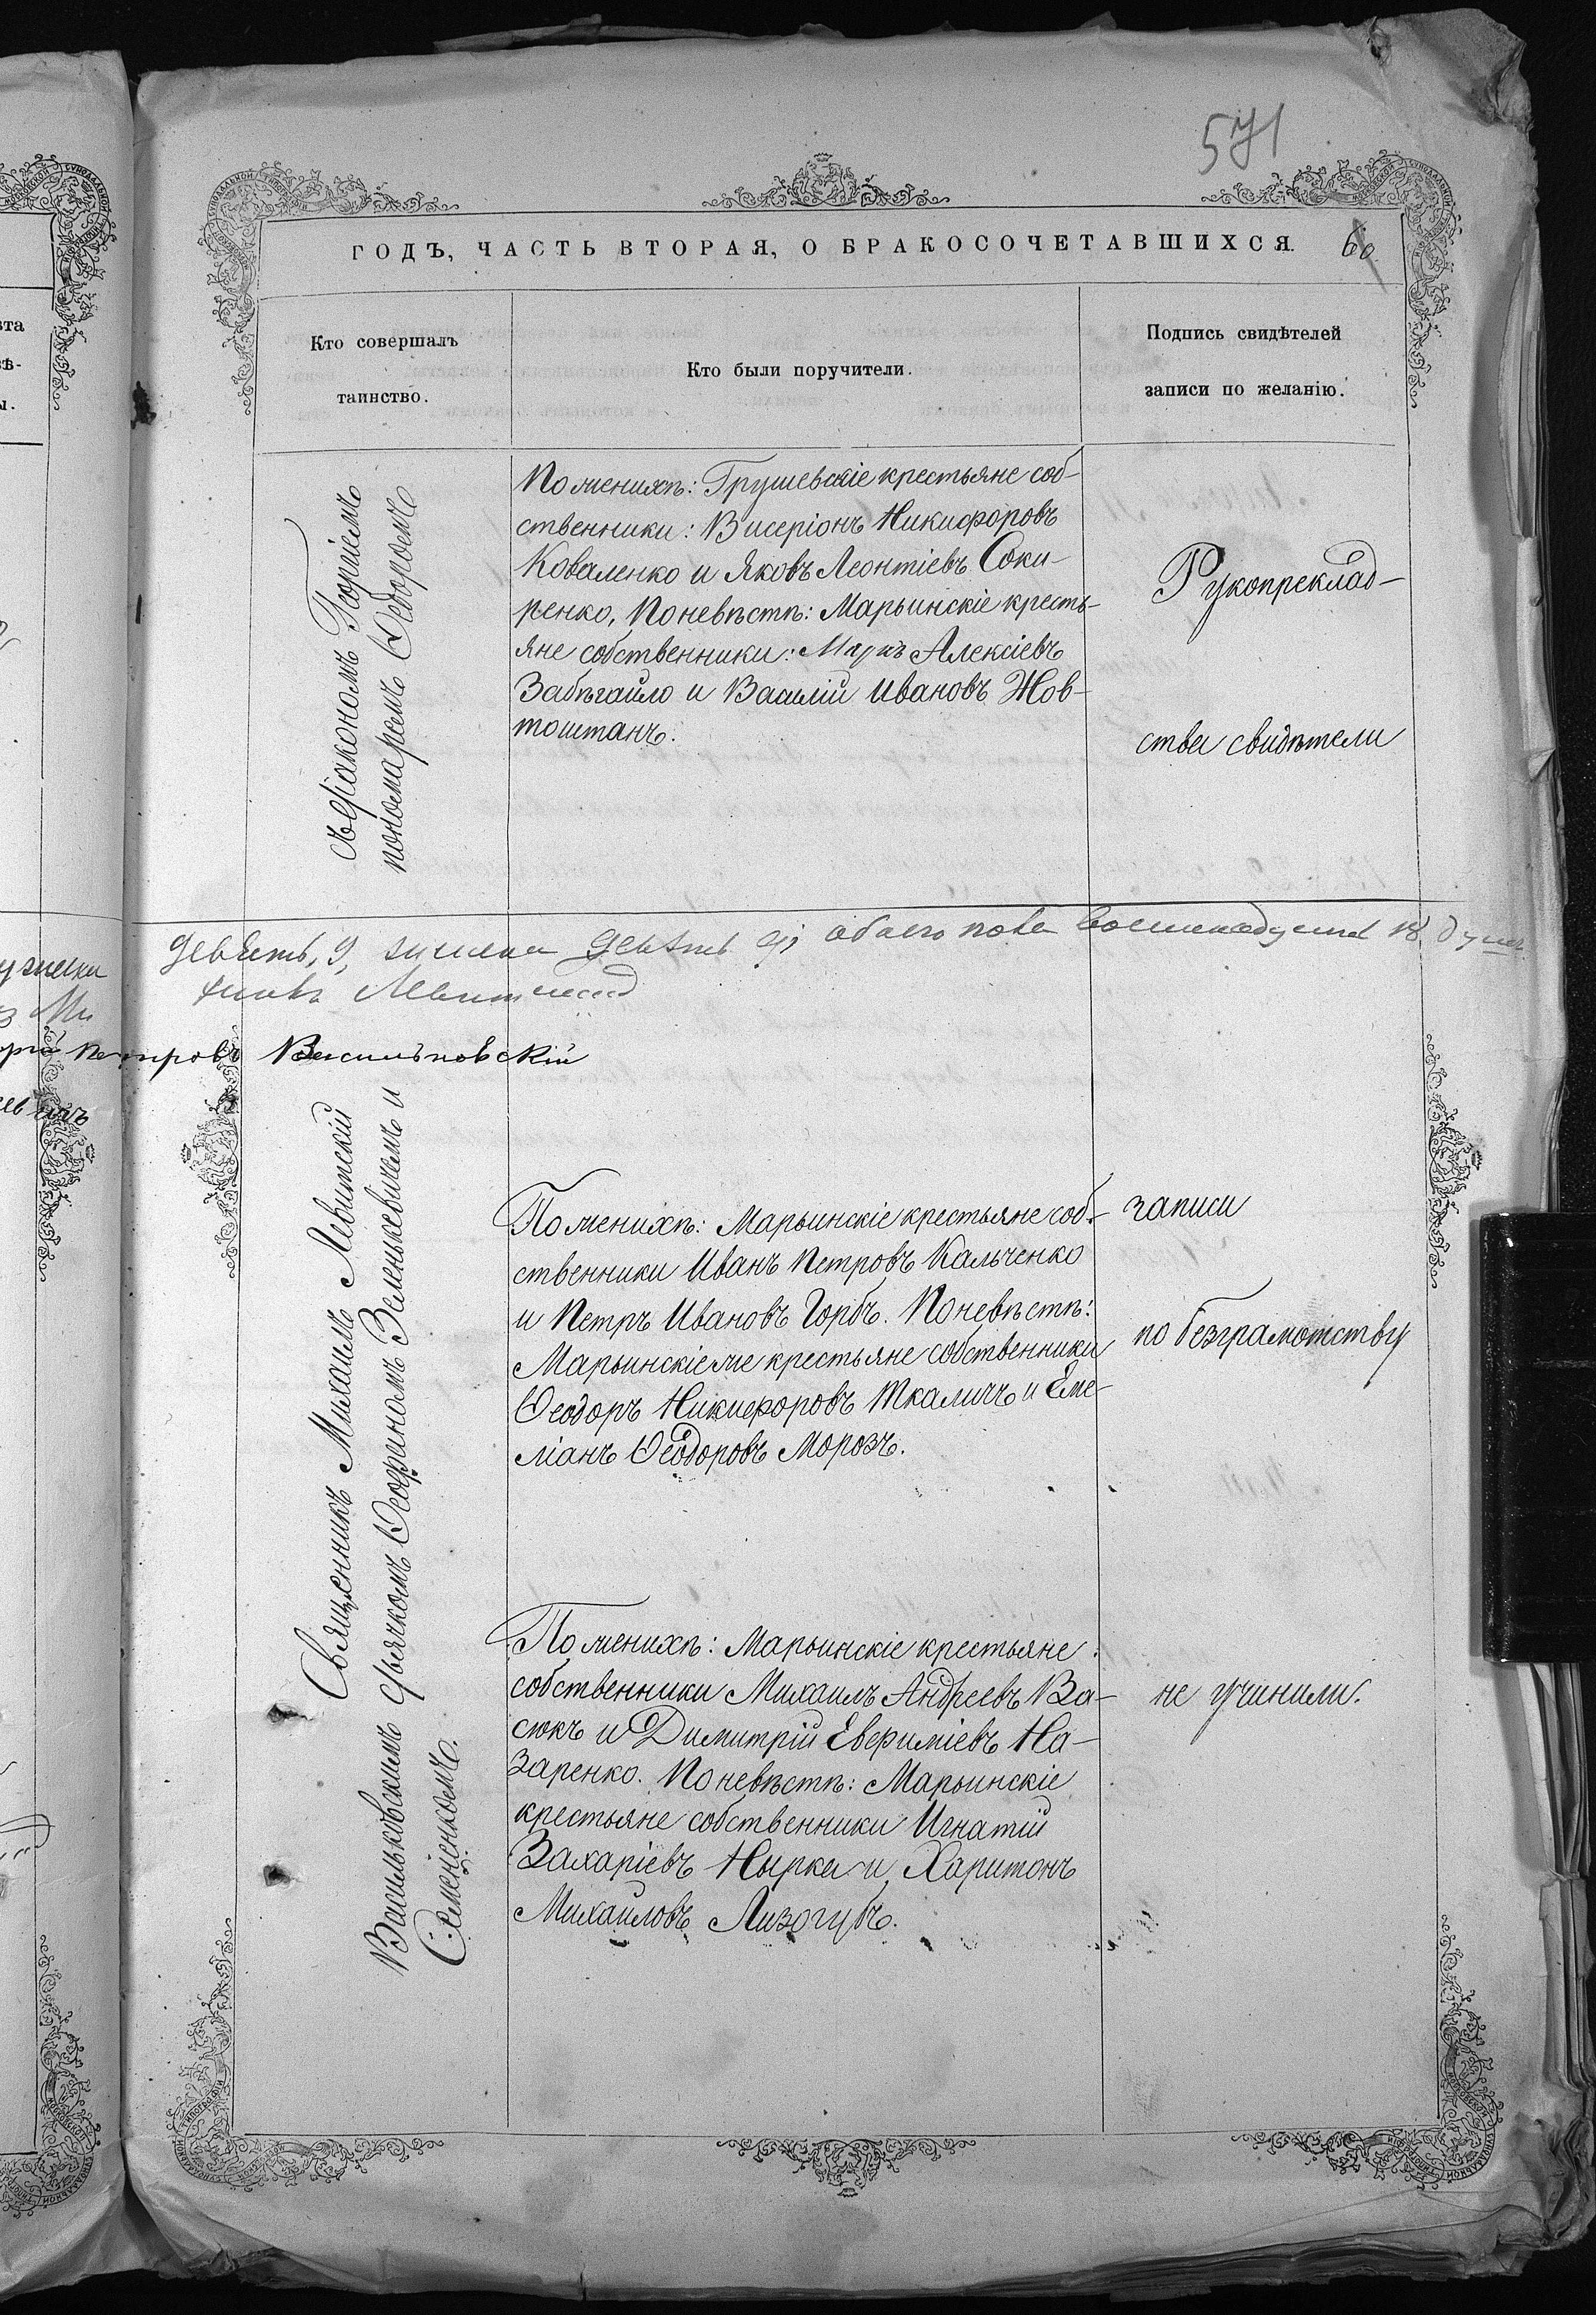 571
ГОДЪ, ЧАСТЬ ВТОРАЯ, О БРАКОСОЧЕТАВШИХСЯ. 60
Кто совершалъ
таинство.
Кто были поручители.
Подпись свидѣтелей
записи по желанію.
съ діакономъ Георгіемъ
пономаремъ Ѳедоромъ
По женихѣ: Грушевскіе крестьяне соб-
ственники: Висеріонъ Никифоровъ
Коваленко и Яковъ Леонтіевъ Соки-
ренко, По невѣстѣ: Марьинскіе кресть-
яне собственники: Алексіевъ
Забѣгайло и Василій Ивановъ Жов-
тоштанъ.
Рукопреклад-
ства свидѣтели
девять, 9, девять 9; обоего пола восемнадцать 18 душъ
Петровъ Васильковскій
Священникъ Михаилъ Левитскій
Васильковскимъ дьячкомъ Ѳеофиномъ Зеленкевичемъ и
Семененкомъ.
По женихѣ: Марьинскіе крестьяне соб-
ственники Иванъ Петровъ Кальченко
и Петръ Ивановъ Горбъ. По невѣстѣ:
Марьинскіе же крестьяне собственники
Ѳеодоръ Никифоровъ Ткаличъ и Еме-
ліанъ Ѳеодоровъ Морозъ.
записи
по безграмотству
По женихѣ: Марьинскіе крестьяне
собственники Михаилъ Андреевъ Ва-
сюкъ и Димитрій Евфиміевъ На-
заренко. По невѣстѣ: Марьинскіе
крестьяне собственники Игнатій
Захаріевъ Нырка и Харитонъ
Михайловъ Лизогубъ.
не учинили.